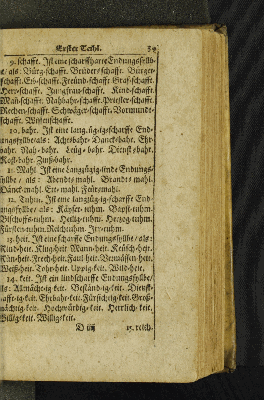 Erster Theil. 39
9. schafft. Ist eine scharffharte Endungssyllb-
e/ als: Bürg-schafft. Brüder-schafft. Bürger-
schafft. Erb-schafft. Freund-schafft Graf-schafft.
Herr-schafft. Jungfrau-schafft. Kind-schafft.
Man-schafft. Nahbahr-schafft. Priester-schafft.
Rechen-schafft. Schwäger-schafft. Vormund-
schafft. Wissen-schafft.
10. bahr. Ist eine lang- End-
ungssyllbe als: Acht-bahr. Danck-bahr. Ehr-
bahr. Nah-bahr. Dienst-bahr.
Kost-bahr. Zinß-bahr.
11. Mahl. Ist eine Endungs-
syllbe/ als: Abend-mahl. Brand-mahl.
Denck-mahl. Eit-mahl.
12. Tuhm. Ist eine scharffe End-
ungssyllbe/ als: Käyser-tuhm. Bapst-tuhm.
Bischoffs-tuhm. Heilig-tuhm. Hertzog-tuhm.
Fürsten-tuhm. Reich-tuhm. Irr-tuhm.
13. heit. Ist eine scharffe Endungssyllbe/ als:
Kind-heit. Klug-heit Mann-heit.
Kün-heit. Frech-heit. Faul-heit.
Weiß-heit. Tohr-heit. Uppig-keit. Wild-heit.
14. keit. Ist ein lindscharffe Endungssyllbe/
als: Allmächt-ig-keit. Beständ-ig-keit. Dienst-
hafft-ig-keit. Ehrbahr-keit. Fürsicht-ig-keit. Groß-
mächtig-keit. Hochwürdig-keit. Herrlich-keit.
Billig-keit. Willig-keit.
D iiij 15. reich.